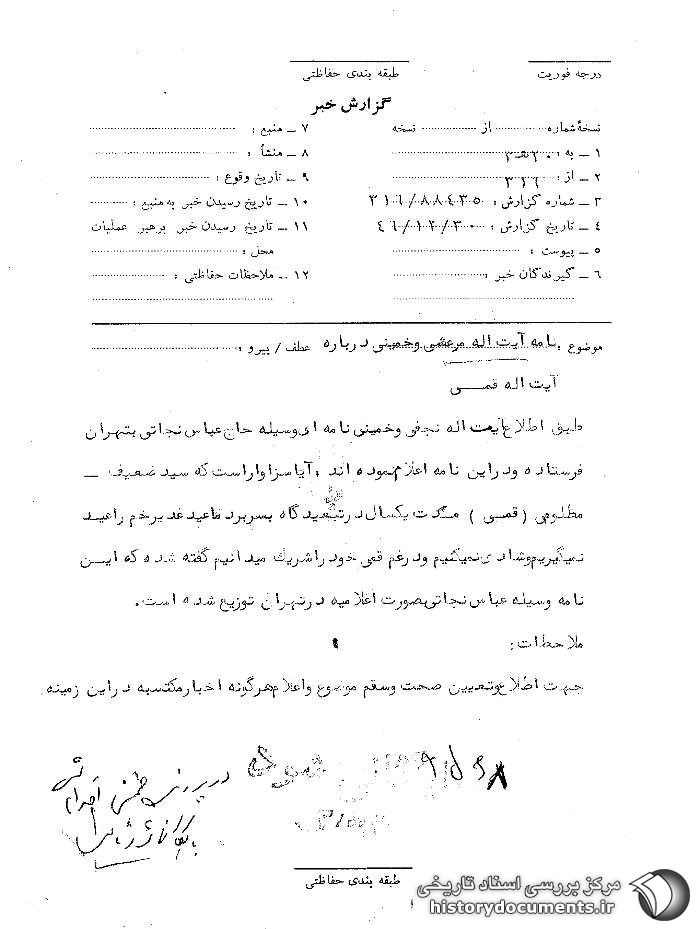 درجه فوریت
طبقه بندی حفاظتی
گزارش خبر
نسخهٔ شماره از نسخه
۱ ــ به :
۲ ــ از : ۳۱۶
۳ ــ شماره گزارش : ۳۱۶/۸۸۴۳۵
۴ ــ تاریخ گزارش : ۴۶/۱۲/۳۰
۵ ــ پیوست :
۶ ــ گیرندگان خبر :
۷ ــ منبع :
۸ ــ منشأ :
۹ ــ تاریخ وقوع :
۱۰ ــ تاریخ رسیدن خبر به منبع :
۱۱ ــ تاریخ رسیدن خبر برهبر عملیات
محل :
۱۲ ــ ملاحظات حفاظتی :
موضوع : نامه آیت اله مرعشی وخمینی درباره عطف / پیرو :
آیت اله قمی
طبق اطلاع آیت اله نجفی وخمینی نامه ای وسیله حاج عباس نجاتی بتهران
فرستاده ودراین نامه اعلام نموده اند ، آیا سزاواراست که سید ضعیف ــ
مظلومی ( قمی ) مدت یکسال درتبعیدگاه بسربرد ماعید غدیرخم راعید
نمیگیریم وشادی نمیکنیم ودرغم قمی خود راشریک میدانیم گفته شده که این
نامه وسیله عباس نجاتی بصورت اعلامیه درتهران توزیع شده است.
ملاحظات:
جهت اطلاع وتعیین صحت وسقم موضوع واعلام هرگونه اخبارمکتسبه دراین زمینه
طبقه بندی حفاظتی
مرکز بررسی اسناد تاریخی
historydocuments.ir